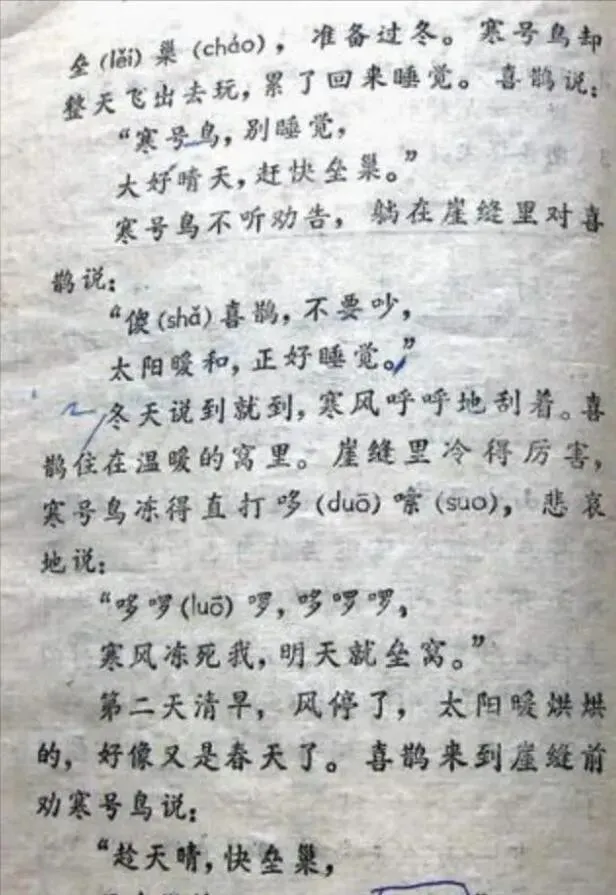 垒(lěi)巢(cháo)，准备过冬。寒号鸟却
整天飞出去玩，累了回来睡觉。喜鹊说：
“寒号鸟，别睡觉，
大好晴天，赶快垒巢。”
寒号鸟不听劝告，躺在崖缝里对喜
鹊说：
“傻(shǎ)喜鹊，不要吵，
太阳暖和，正好睡觉。”
冬天说到就到，寒风呼呼地刮着。喜
鹊住在温暖的窝里。崖缝里冷得厉害，
寒号鸟冻得直打哆(duō)嗦(suo)，悲哀
地说：
“哆啰(luō)啰，哆啰啰，
寒风冻死我，明天就垒窝。”
第二天清早，风停了，太阳暖烘烘
的，好像又是春天了。喜鹊来到崖缝前
劝寒号鸟说：
“趁天晴，快垒巢，